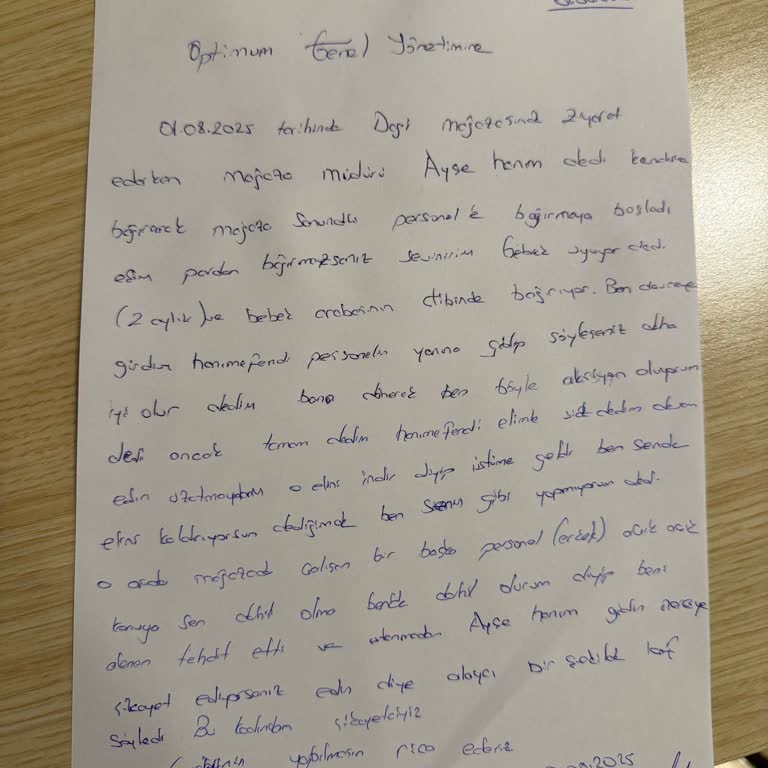 Optimum Genel Yönetimine
01.08.2025 tarihinde Degi mağazasında ziyaret
ederken mağaza müdürü Ayşe hanım dedi kendine
bağırarak mağaza sonunda personele bağırmaya başladı
eşim pardon bağırmazsanız sevinirim bebek uyuyor dedi.
(2 aylık) ve bebek arabasının dibinde bağırıyor. Ben devreye
girdim hanımefendi personelin yanına gidip söyleseniz daha
iyi olur dedim bana dönerek ben böyle aksiyon alıyorum
dedi ancak tamam dedim hanımefendi elimle siz dedim devam
edin uzatmayalım o elini indir diyip üstüme geldi ben sende
elini kaldırıyorsun dediğimde ben senin gibi yapmıyorum dedi.
o arada mağazada çalışan bir başka personel (erkek) açık açık
konuya sen dahil olma bende dahil olurum diyip beni
alenen tehdit etti ve utanmadan Ayşe hanım gidin nereye
şikayet ediyorsanız edin diye alaycı bir şekilde laf
söyledi Bu kadından şikayetçiyiz
yapılmasını rica ederiz
2025